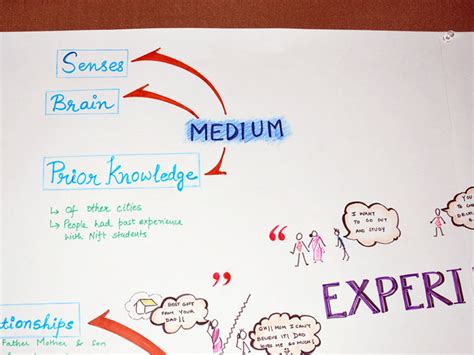 Senses
Brain
MEDIUM
Prior Knowledge
↳ Of other cities
↳ People had past experience
with Nift students
I WANT
TO GO
OUT AND
STUDY
YO
TO
“
BEST GIFT
FROM YOUR
DAD!!
”
EXPERI
tionships
Father Mother & Son
OH!! MOM I CAN'T
BELIEVE IT! DAD
ME SO MUCH!